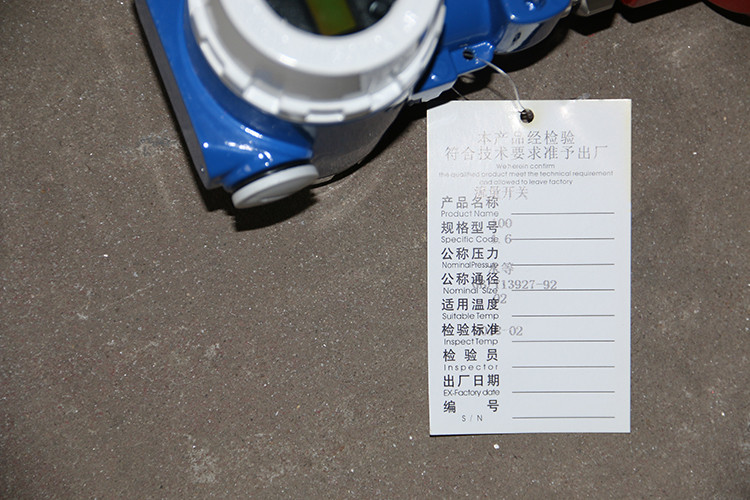 本产品经检验
符合技术要求准予出厂
We herein confirm
the qualified product meet the technical requirement
and allowed to leave factory
流量开关
产品名称
Product Name
100
规格型号
Specific Code
6
公称压力
Nominal Pressure
水等
公称通径
13927-92
Nominal Size
02
适用温度
Suitable Temp
检验标准
-02
Inspect Temp
检验员
Inspector
出厂日期
EX-Factory date
编号
S/N